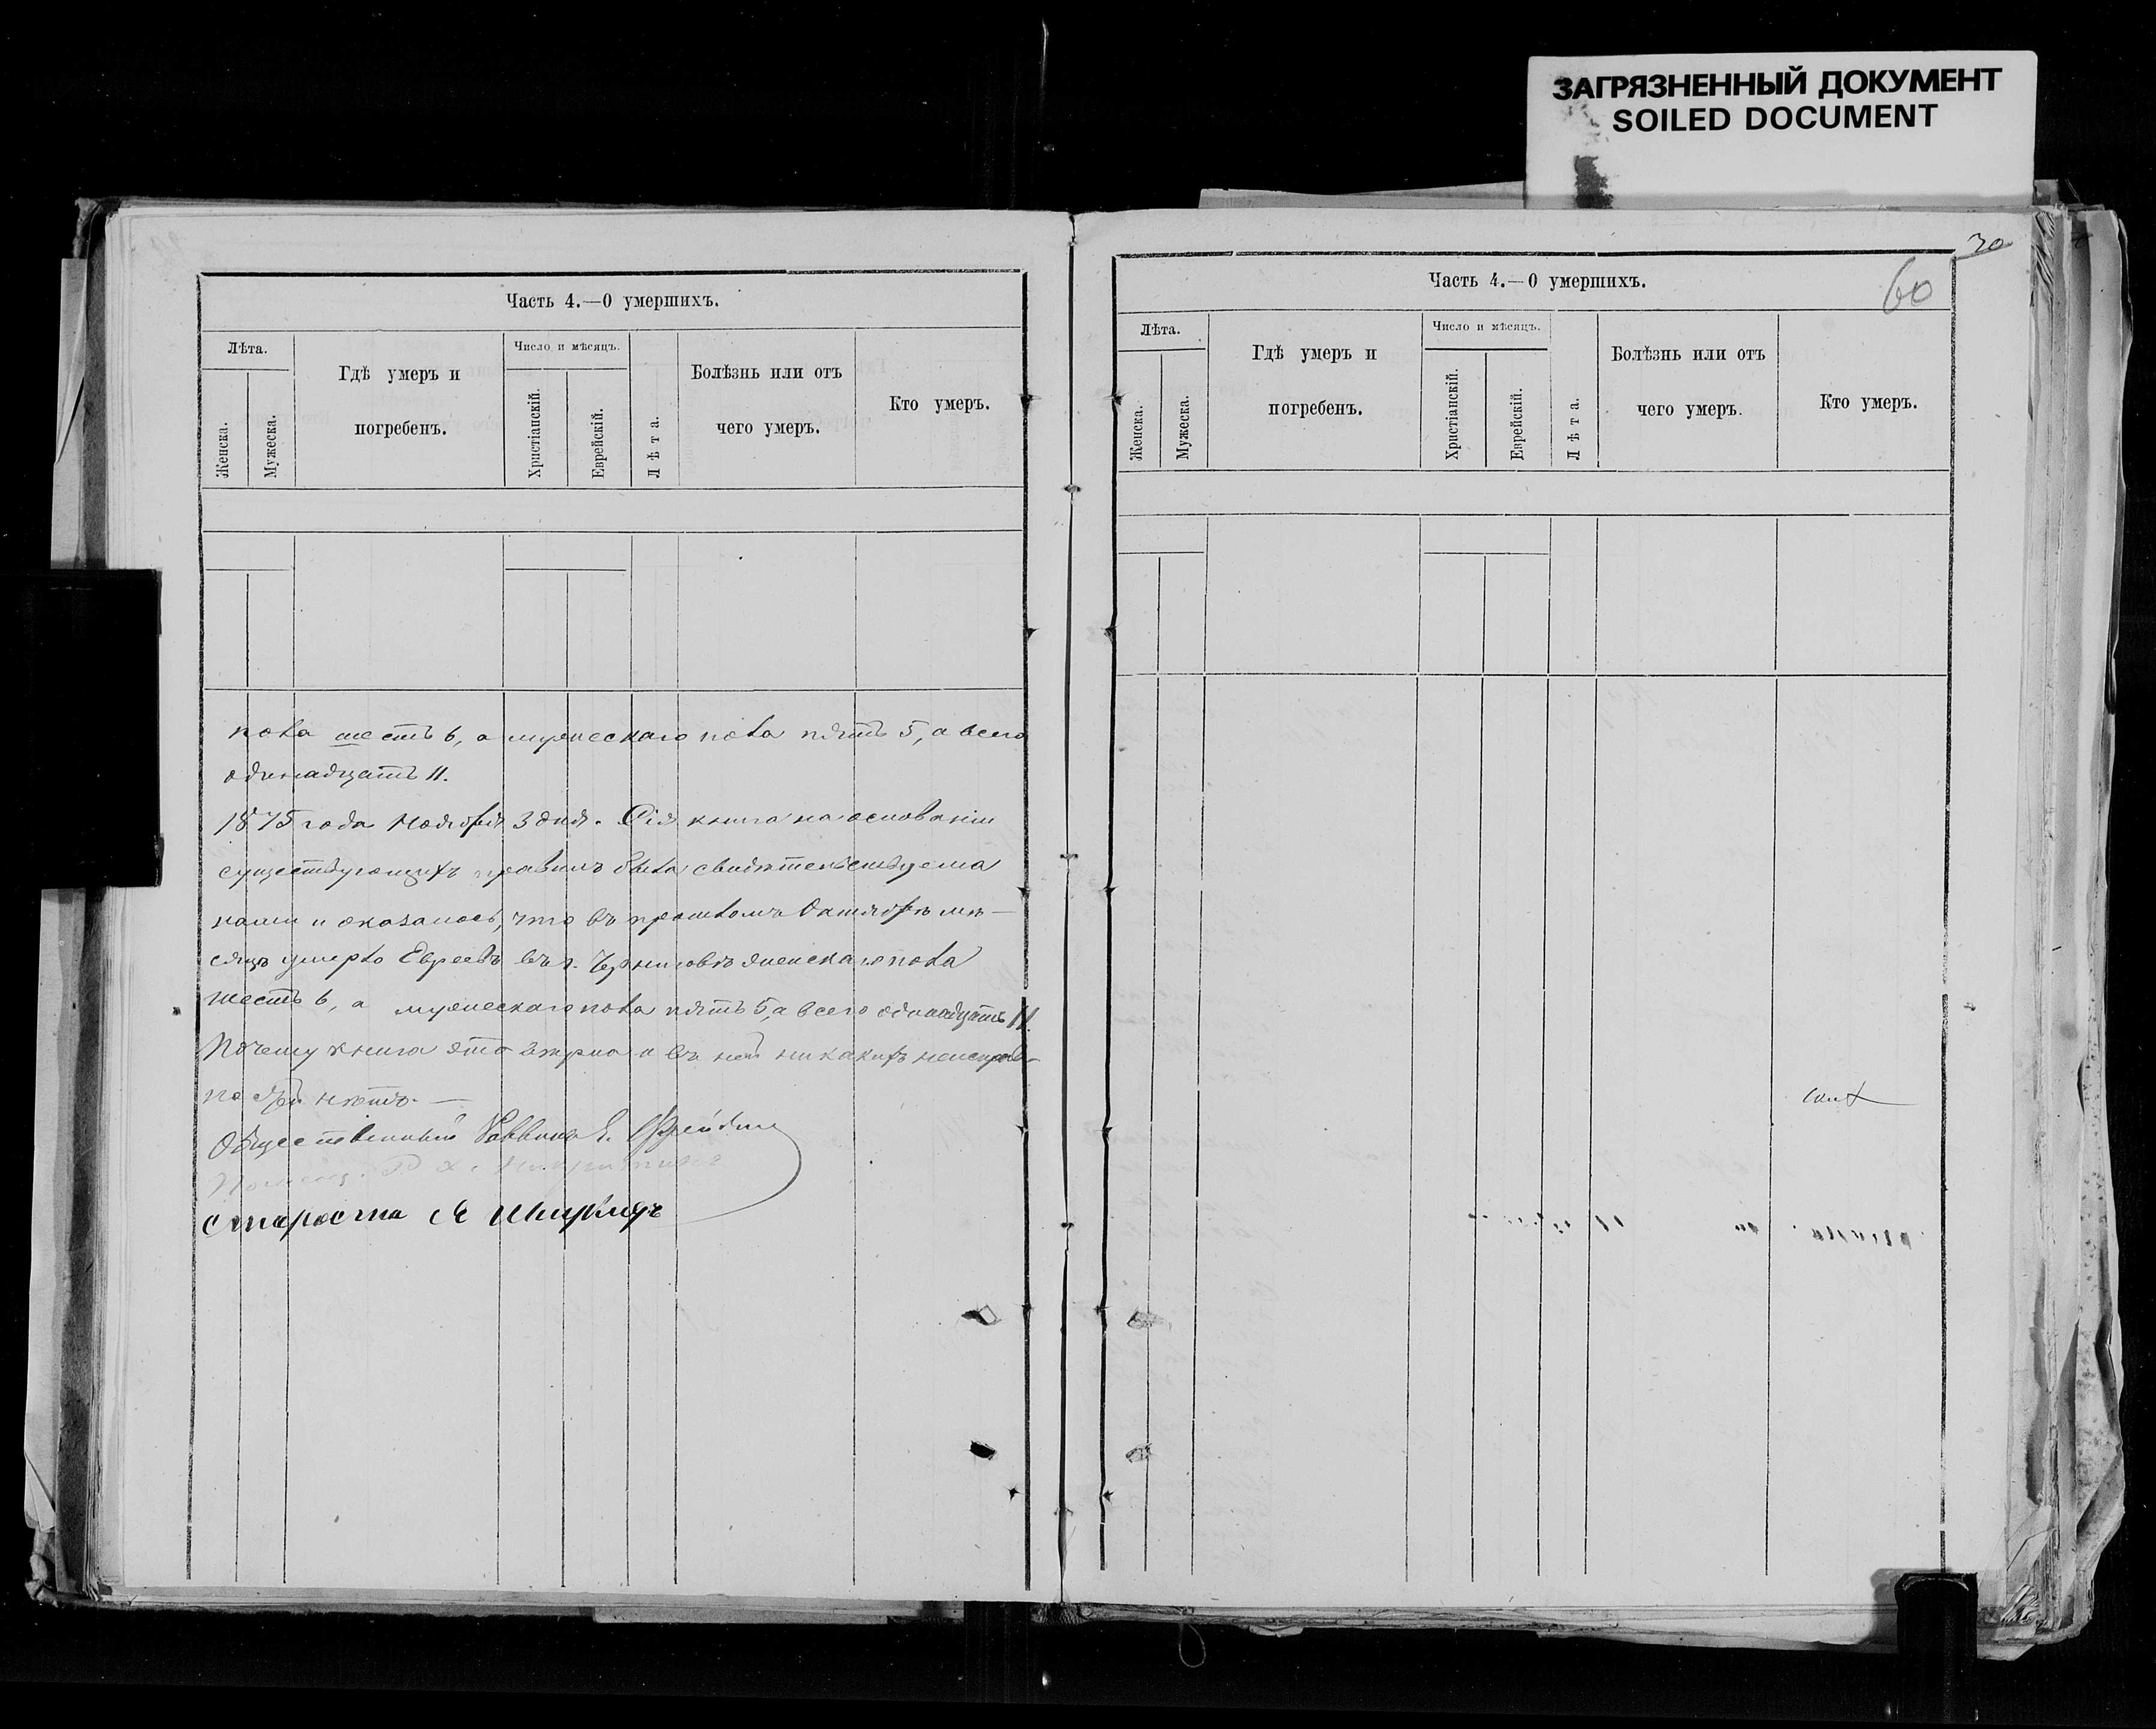 ЗАГРЯЗНЕННЫЙ ДОКУМЕНТ
SOILED DOCUMENT
Часть 4.—О умершихъ.
Лѣта.
Женска.
Мужеска.
Гдѣ умеръ и
погребенъ.
Число и мѣсяцъ.
Христіанскій.
Еврейскій.
Лѣта.
Болѣзнь или отъ
чего умеръ.
Кто умеръ.
пола шесть 6, а мужескаго пола пять 5, а всего
одинадцать 11.
1875 года Ноября 3 дня. Сія книга на основаніи
существующихъ правилъ была свидѣтельствуема
нами и оказалось, что въ прошломъ Октябрѣ мѣ—
сяцѣ умерло Евреевъ въ г. Черниговѣ женскаго пола
шесть 6, а мужескаго пола пять 5, а всего одинадцать 11.
Почему книга эта вѣрна и въ ней никакихъ неисправ-
ностей нѣтъ.—
Общественный Раввинъ
староста
30
60
Часть 4.—О умершихъ.
Лѣта.
Женска.
Мужеска.
Гдѣ умеръ и
погребенъ.
Число и мѣсяцъ.
Христіанскій.
Еврейскій.
Лѣта.
Болѣзнь или отъ
чего умеръ.
Кто умеръ.